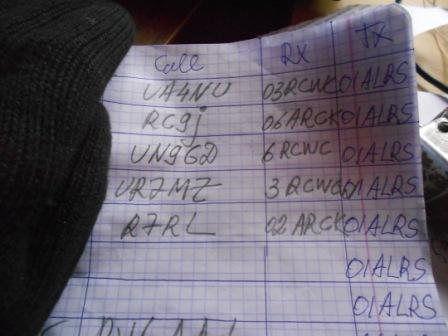 Call RX TX
UA4NU 03RCWC 01ALRS
RG9J 06ARCK 01ALRS
UN9GD 6RCWC 01ALRS
UR7MZ 3RCWC 01ALRS
R7RL 02ARCK 01ALRS
01ALRS
01ALRS